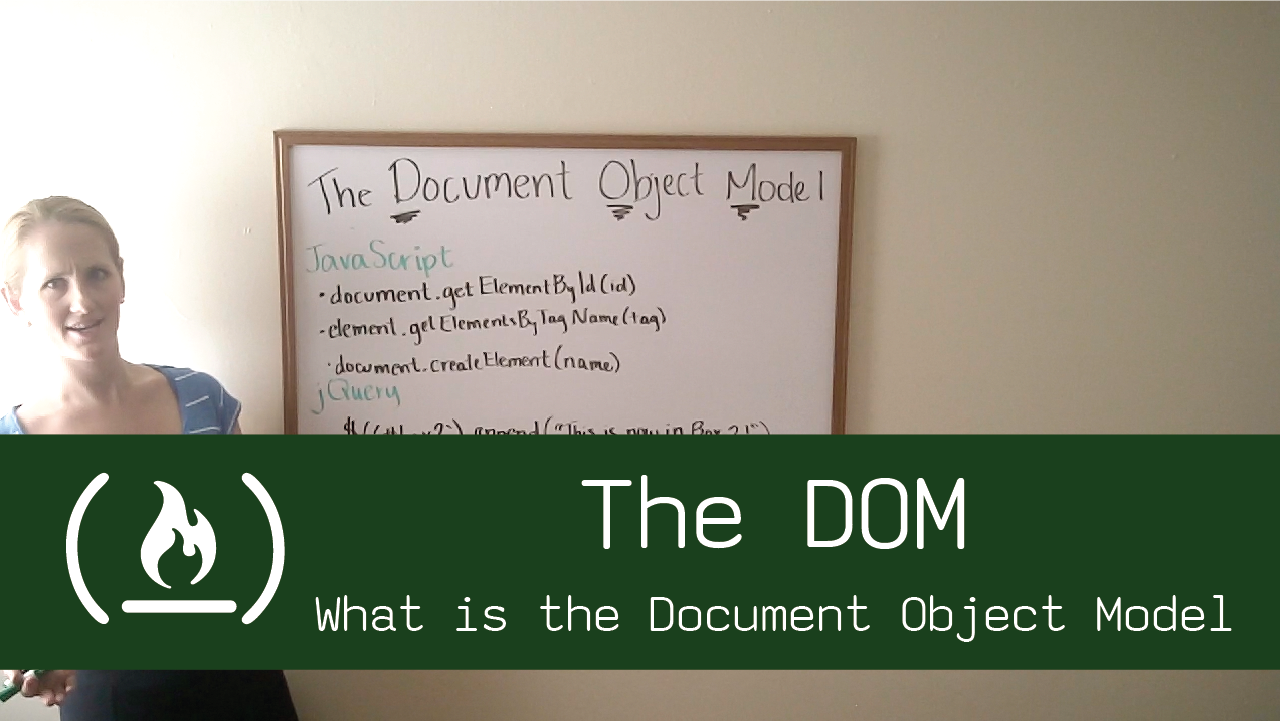 The Document Object Model
JavaScript
· document.getElementById(id)
- element.getElementsByTagName(tag)
· document.createElement(name)
jQuery
append("This is now in Box 2!")
The DOM
What is the Document Object Model